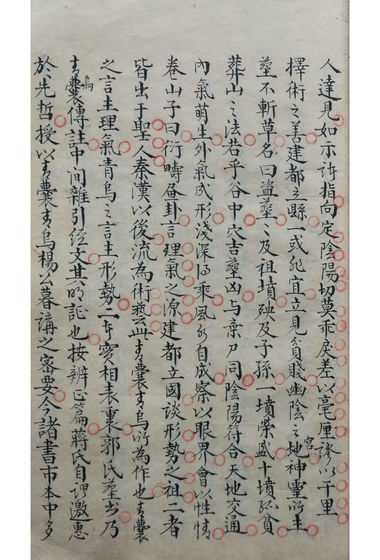 人達見如示諸指向定陰陽切莫乖戾差以毫厘謬以千里
擇術之善建都立縣一或非宜立見貧賤幽陰之宮地神靈所主
塟不斬草名曰盜塟塟及祖墳殃及子孫一墳榮盛十墳孤貧
葬山之法若乎谷中穴吉塟凶与棄尸同陰陽符合天地交通
內氣萌生外氣成形淺深得乘風水自成察以眼界會以性情
卷山子曰衍疇畫卦言理氣之源建都立國談形勢之祖二者
皆出于聖人秦漢以後流為術藝青囊青烏所為作也青囊
之言主理氣青烏之言主形勢二書實相表裏郭氏塟書乃
青囊傳註中間雜引經文其明証也按辨正篇蔣氏自謂邀惠
烏
於先哲授以青囊青烏楊公暮講之密要今諸書市本中多